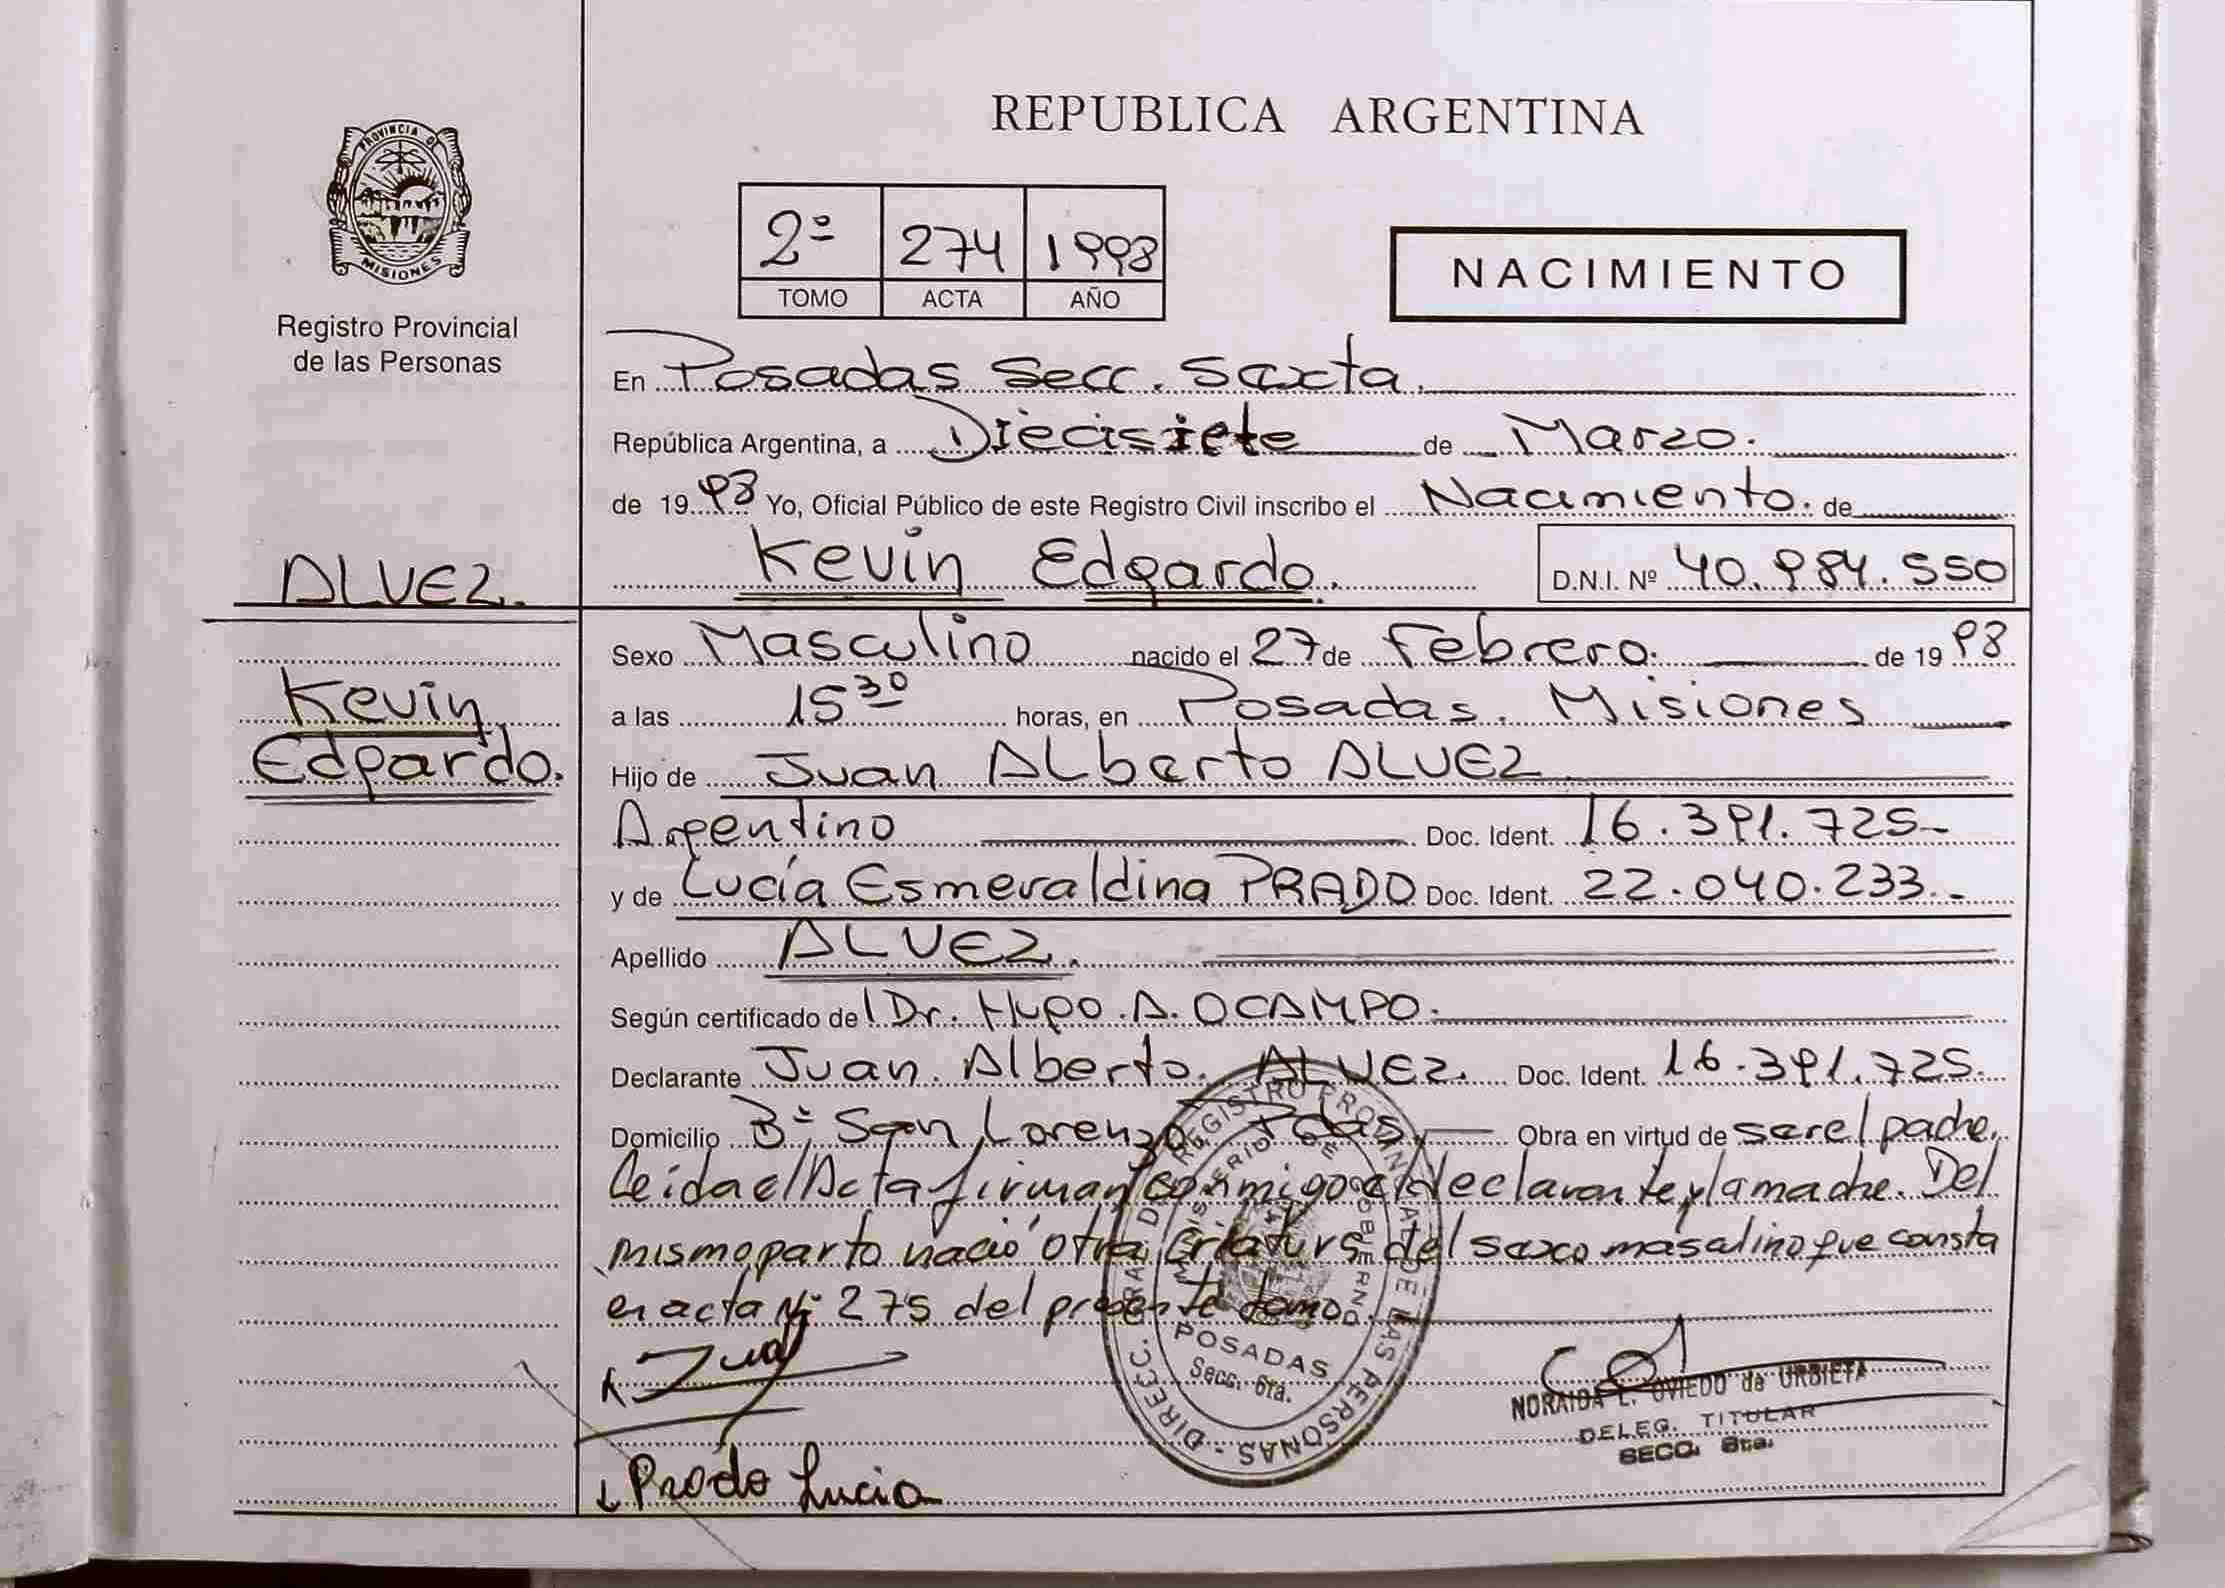 REPUBLICA ARGENTINA
PROVINCIA DE
MISIONES
Registro Provincial
de las Personas
2º 274 1998
TOMO ACTA AÑO
NACIMIENTO
En Posadas Secc. Sexta.
República Argentina, a Diecisiete de Marzo.
de 1998 Yo, Oficial Público de este Registro Civil inscribo el Nacimiento. de
Kevin Edgardo. D.N.I. Nº 40.984.550
ALVEZ.
Kevin
Edgardo.
Sexo Masculino nacido el 27 de Febrero. de 1998
a las 15 30 horas, en Posadas. Misiones
Hijo de Juan Alberto ALVEZ
Argentino Doc. Ident. 16.391.725-
y de Lucía Esmeraldina PRADO Doc. Ident. 22.040.233.-
Apellido ALVEZ.
Según certificado del Dr. Hugo. A. OCAMPO.
Declarante Juan. Alberto. ALVEZ. Doc. Ident. 16.391.725.
Domicilio Bº San Lorenzo Pdas. Obra en virtud de ser el padre.
Leída el Acta firman conmigo el declarante y la madre. Del
mismo parto nació otra criatura del sexo masculino que consta
en acta Nº 275 del presente tomo.
DIRECC. GRAL. DE REGISTRO PROVINCIAL DE LAS PERSONAS -
MINISTERIO DE GOBIERNO
POSADAS
Secc. 6ta.
NORAIDA L. OVIEDO de URBIETA
DELEG. TITULAR
SECC. 6ta.
Prado Lucia